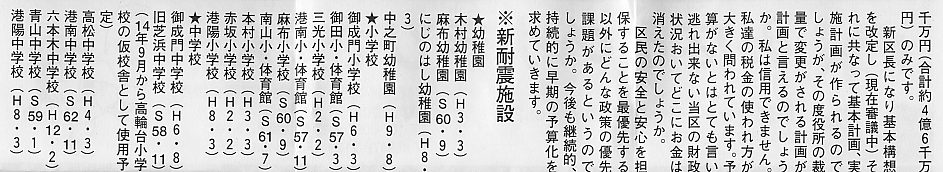 千万円（合計約４億６千万
円）のみです。
　新区長になり基本構想
を改定し（現在審議中）そ
れに共なって基本計画、実
施計画が作られるので
しょうが、その度役所の裁
量で変更がされる計画が
計画と言えるのでしょう
か。私は信用できません。
私達の税金の使われ方が
大きく問われています。予
算がないとはとても言い
逃れ出来ない当区の財政
状況おいてどこにお金は
消えたのでしょうか。
　区民の安全と安心を担
保することを最優先する
以外にどんな政策の優先
課題があるというので
しょうか。今後も継続的、
持続的に早期の予算化を
求めていきます。
※新耐震施設
★幼稚園
木村幼稚園（Ｈ３・３）
麻布幼稚園（Ｓ６０・９）
にじのはし幼稚園（Ｈ８・
３）
中之町幼稚園（Ｈ９・８）
★小学校
御成門小学校（Ｈ６・８）
御田小・体育館（Ｓ５７・３）
港南小・体育館（Ｓ５７・１１）
三光小学校（Ｈ２・２）
麻布小学校（Ｓ６０・９）
南山小・体育館（Ｓ６１・７）
本村小学校（Ｈ３・３）
赤坂小学校（Ｈ２・２）
港陽小学校（Ｈ８・３）
★中学校
御成門中学校（Ｈ６・８）
旧芝浜中学校（Ｓ５８・１１）
（１４年９月から高輪台小学
校の仮校舎として使用予
定）
高松中学校（Ｈ４・３）
港南中学校（Ｓ６２・１１）
六本木中学校（Ｈ１２・２）
青山中学校（Ｓ５９・１）
港陽中学校（Ｈ８・３）